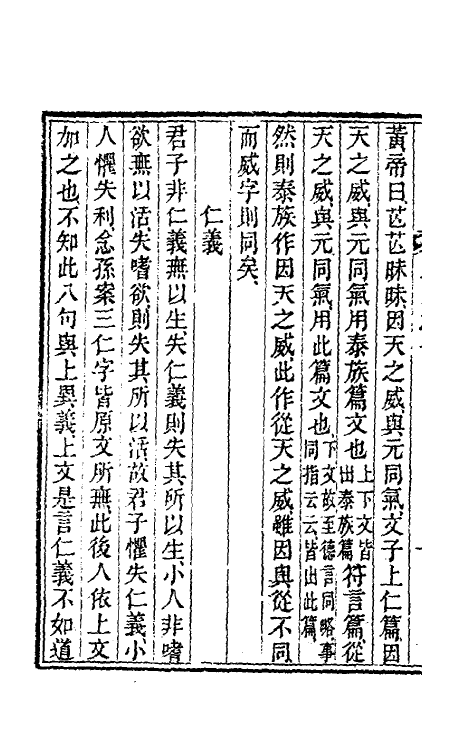 黃帝曰芒芒昧昧因天之威與元同氣文子上仁篇因
天之威與元同氣用泰族篇文也上下文皆出泰族篇符言篇從
天之威與元同氣用此篇文也下文故至德言同略事同指云云皆出此篇
然則泰族作因天之威此作從天之威雖因與從不同
而威字則同矣
仁義
君子非仁義無以生失仁義則失其所以生小人非嗜
欲無以活失嗜欲則失其所以活故君子懼失仁義小
人懼失利念孫案三仁字皆原文所無此後人依上文
加之也不知此八句與上異義上文是言仁義不如道